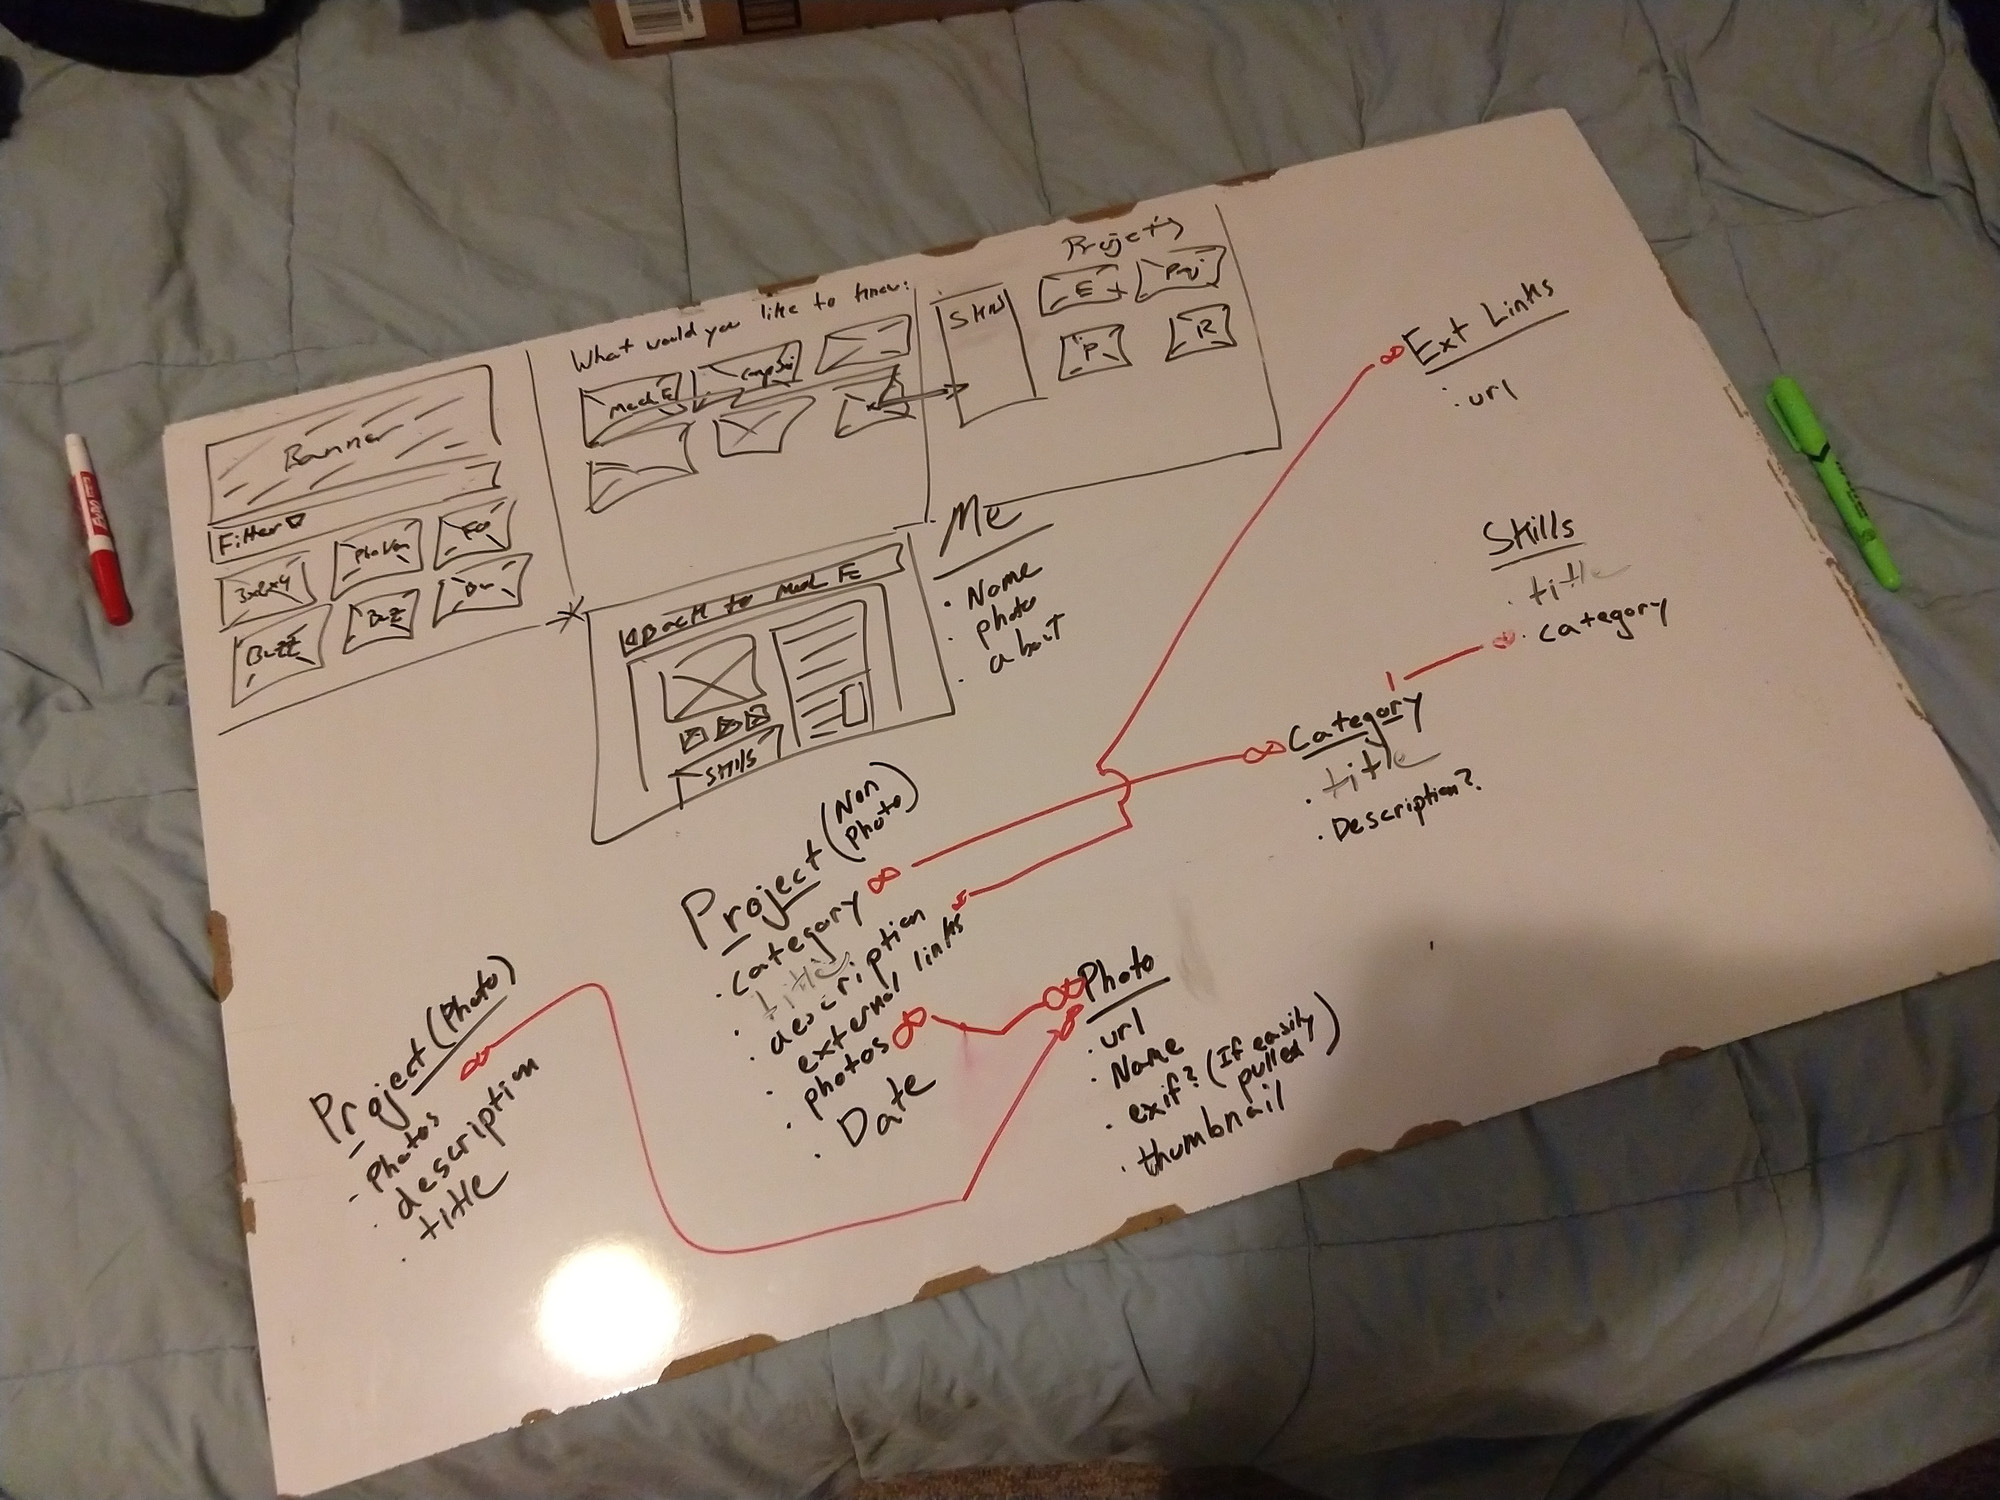 Banner
Filter
BUZZ
What would you like to know:
Mech E
CompSci
Skills
Projects
E
Proj
P
R
Back to Mech E
Skills
Me
· Name
· photo
· about
Ext Links
· url
Skills
· title
· category
1
Category
· title
· Description?
Project (Non Photo)
· category ∞
· title
· description
· external links
· photos ∞
· Date
∞ Photo
· url
· Name
· exif? (If easily
pulled)
· thumbnail
Project (Photo)
- Photos ∞
· description
· title